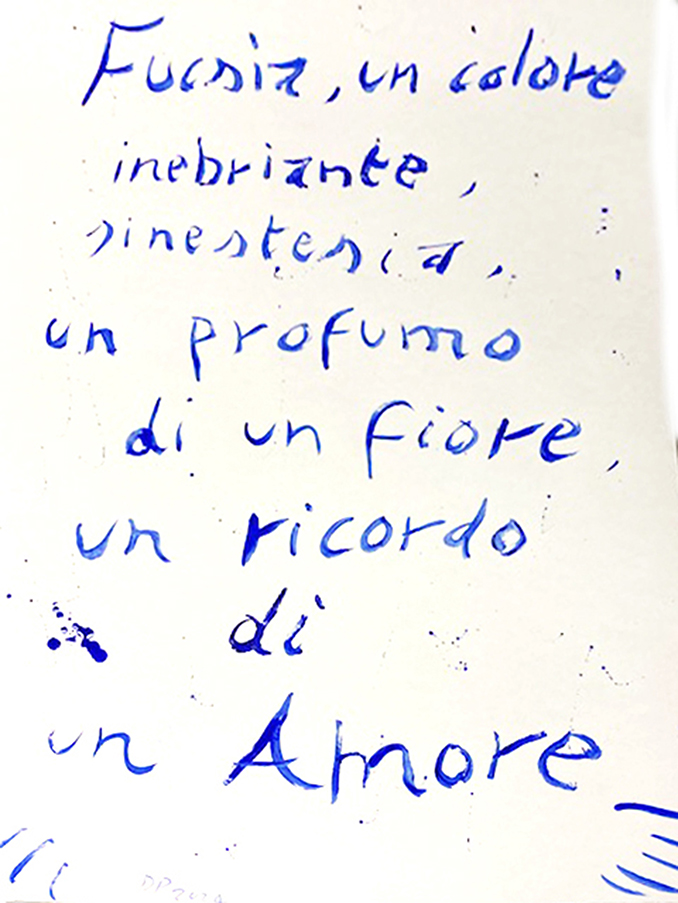 Fucsia, un colore
inebriante,
sinestesia,
un profumo
di un fiore,
un ricordo
di
un Amore